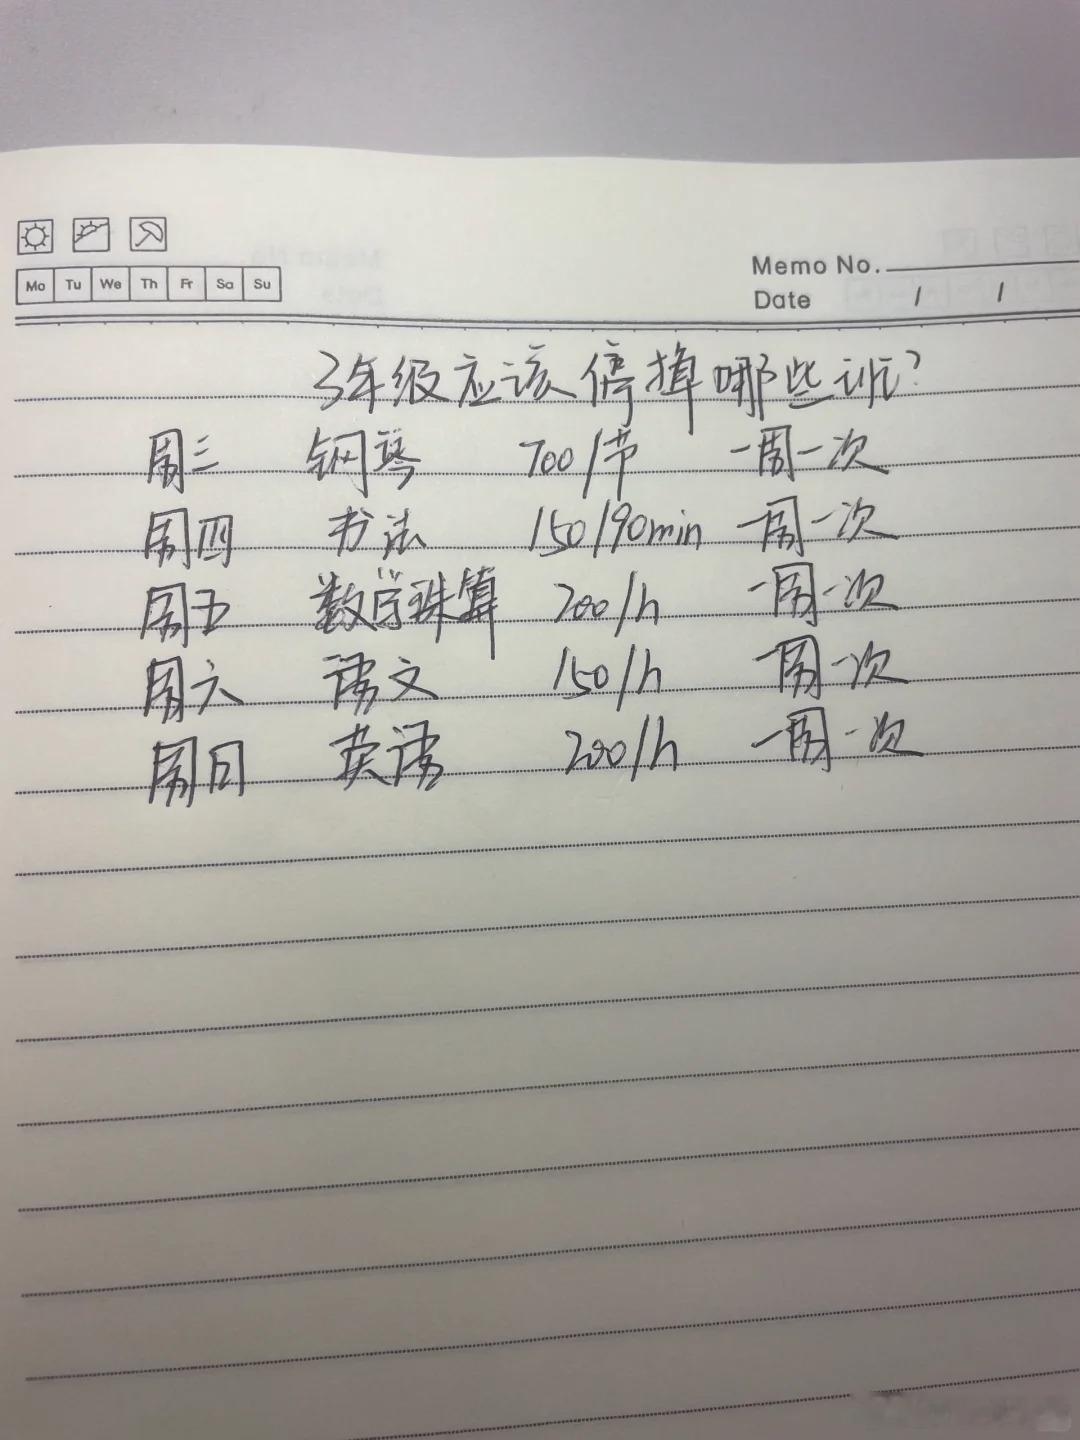 Mo Tu We Th Fr Sa Su
Memo No.
Date / /
3年级应该停掉哪些班?
周三 钢琴 700/节 一周一次
周四 书法 150/90min 一周一次
周五 数学珠算 200/h 一周一次
周六 语文 150/h 一周一次
周日 英语 200/h 一周一次